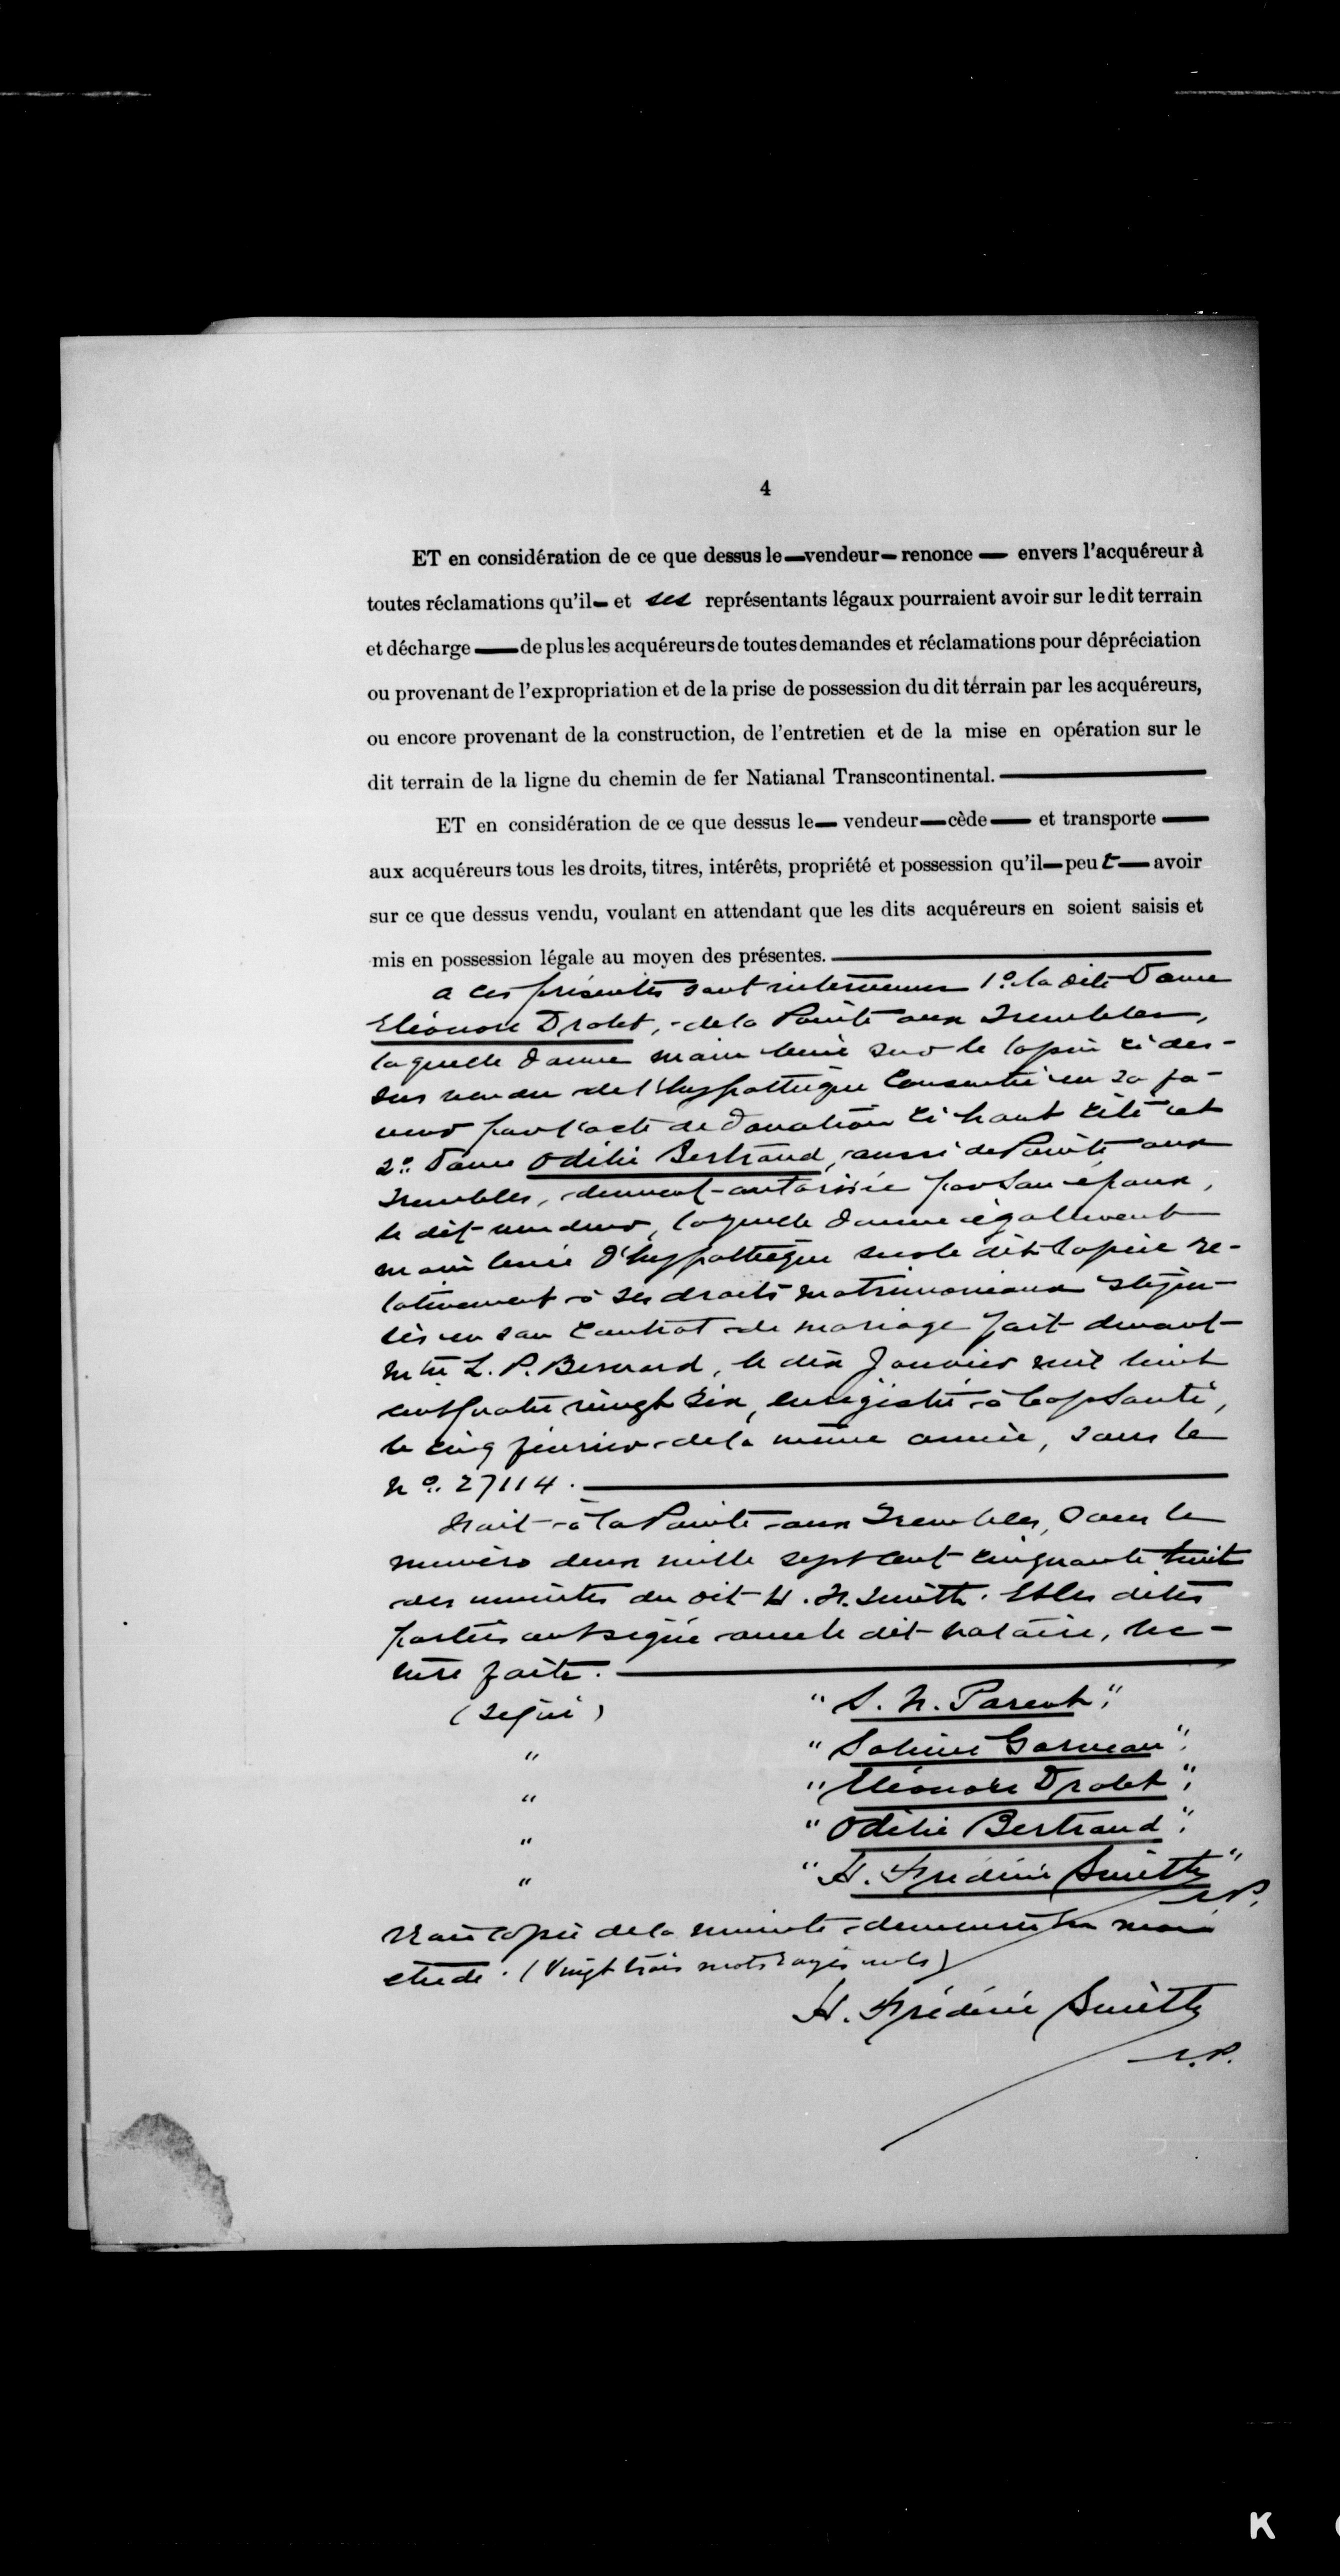 4
ET en considération de ce que dessus le — vendeur — renonce — envers l'acquéreur à
toutes réclamations qu'il — et ses représentants légaux pourraient avoir sur le dit terrain
et décharge — de plus les acquéreurs de toutes demandes et réclamations pour dépréciation
ou provenant de l'expropriation et de la prise de possession du dit térrain par les acquéreurs,
ou encore provenant de la construction, de l'entretien et de la mise en opération sur le
dit terrain de la ligne du chemin de fer Natianal Transcontinental. —
ET en considération de ce que dessus le — vendeur — cède — et transporte —
aux acquéreurs tous les droits, titres, intérêts, propriété et possession qu'il — peut — avoir
sur ce que dessus vendu, voulant en attendant que les dits acquéreurs en soient saisis et
mis en possession légale au moyen des présentes. —
A ces présentes sont intervenues 1º la dite Dame
Eléonore Drolet, de la Pointe aux Trembles,
laquelle donne main levée sur le lopin ci des-
sus vendu de l'hypothèque consentie en sa fa-
veur par l'acte de donation ci haut cité et
2º Dame Odélie Bertrand, aussi de Pointe aux
Trembles, dûment autorisée par son époux,
le dit vendeur, laquelle donne également
main levée d'hypothèque sur le dit lopin re-
lativement à ses droits matrimoniaux stipu-
lés en son contrat de mariage fait devant
Mtre L. P. Bernard, le dix Janvier mil huit
cent quatre vingt six, enregistré à Cap Santé,
le cinq février de la même année, sous le
No. 27114. —
Fait à la Pointe aux Trembles, sous le
numéro deux mille sept cent cinquante huit
des minutes du dit H. F. Smith. Et les dites
parties ont signé avec le dit notaire, lec-
ture faite. —
(Signé) " S. N. Parent",
" "Sabin Garneau",
" "Eléonore Drolet",
" "Odélie Bertrand",
" "H. Frédéric Smith" N.P.
Vraie copie de la minute demeurée en mon
étude. (Vingt trois mots rayés nuls)
H. Frédéric Smith
N.P.
K